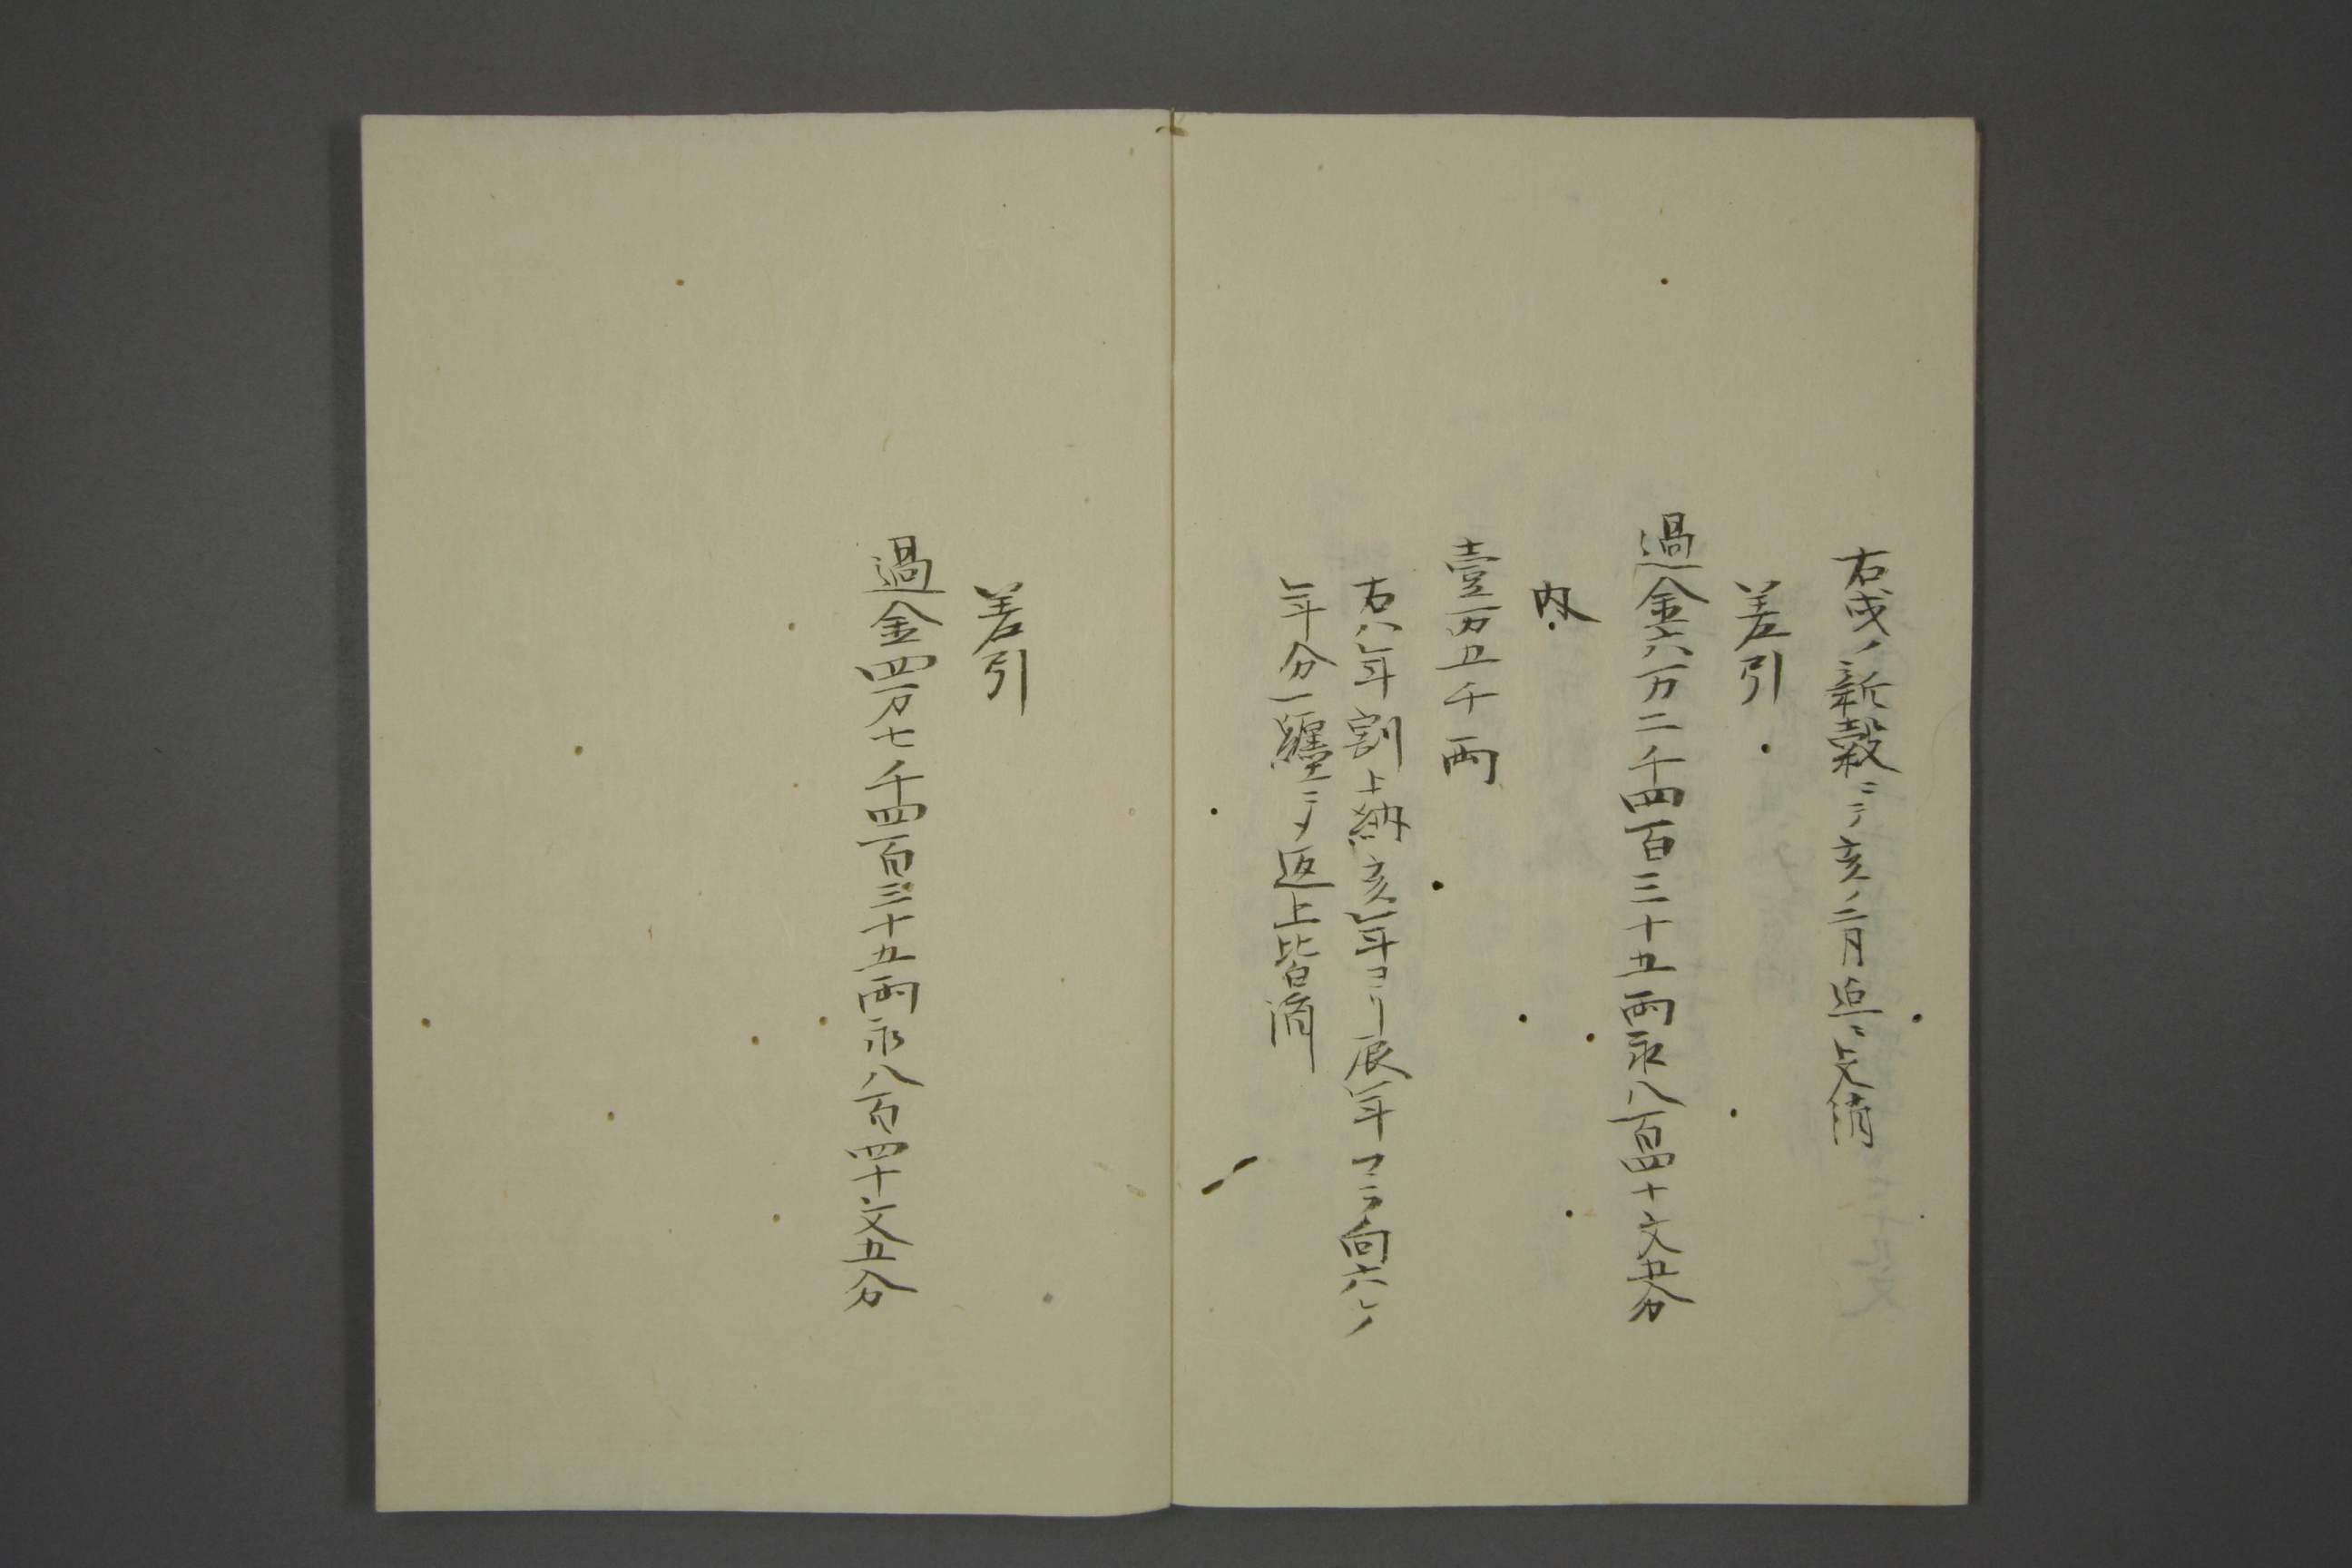 右戌ノ新穀ニテ亥ノ二月迄ニ上済
差引
過金六万二千四百三十五両永八百四十文五分
内
壹万五千両
右八年割上納亥年ヨリ辰年マテ向六ケ
年分一纏ニメ返上皆済
差引
過金四万七千四百三十五両永八百四十文五分